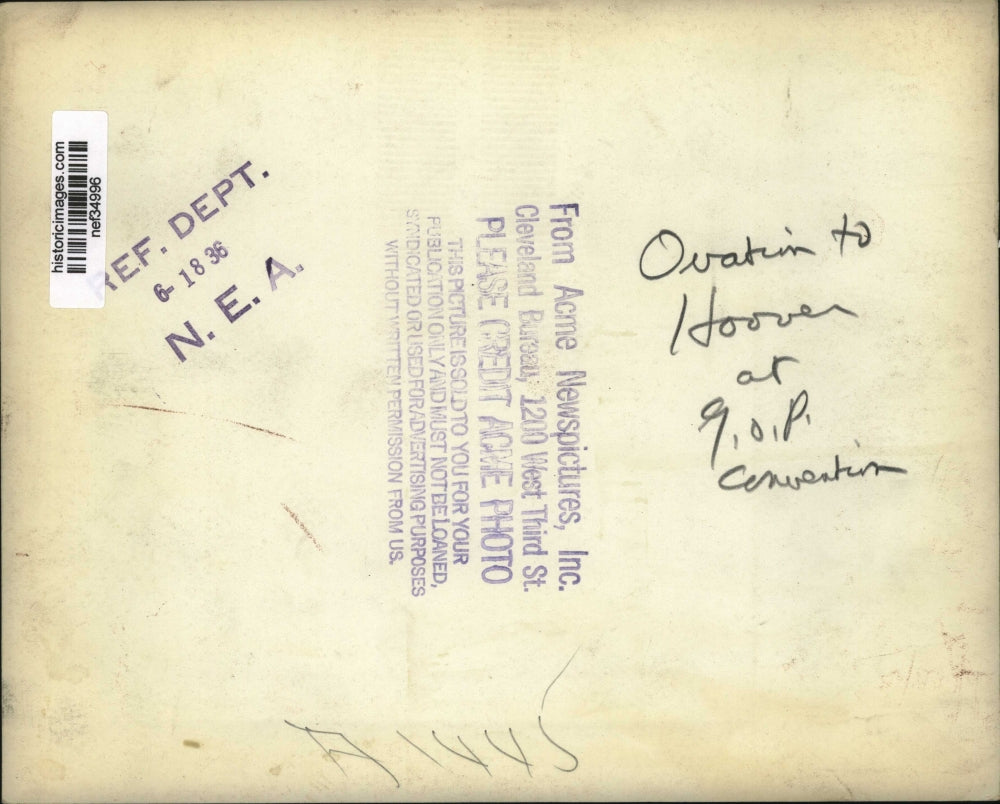 historicimages.com
nef34996
REF. DEPT.
6-18 36
N. E. A.
From Acme Newspictures, Inc.
Cleveland Bureau, 1200 West Third St.
PLEASE CREDIT ACME PHOTO
THIS PICTURE IS SOLD TO YOU FOR YOUR
PUBLICATION ONLY AND MUST NOT BE LOANED,
SYNDICATED OR USED FOR ADVERTISING PURPOSES
WITHOUT WRITTEN PERMISSION FROM US.
Ovation to
Hoover
at
G.O.P.
convention